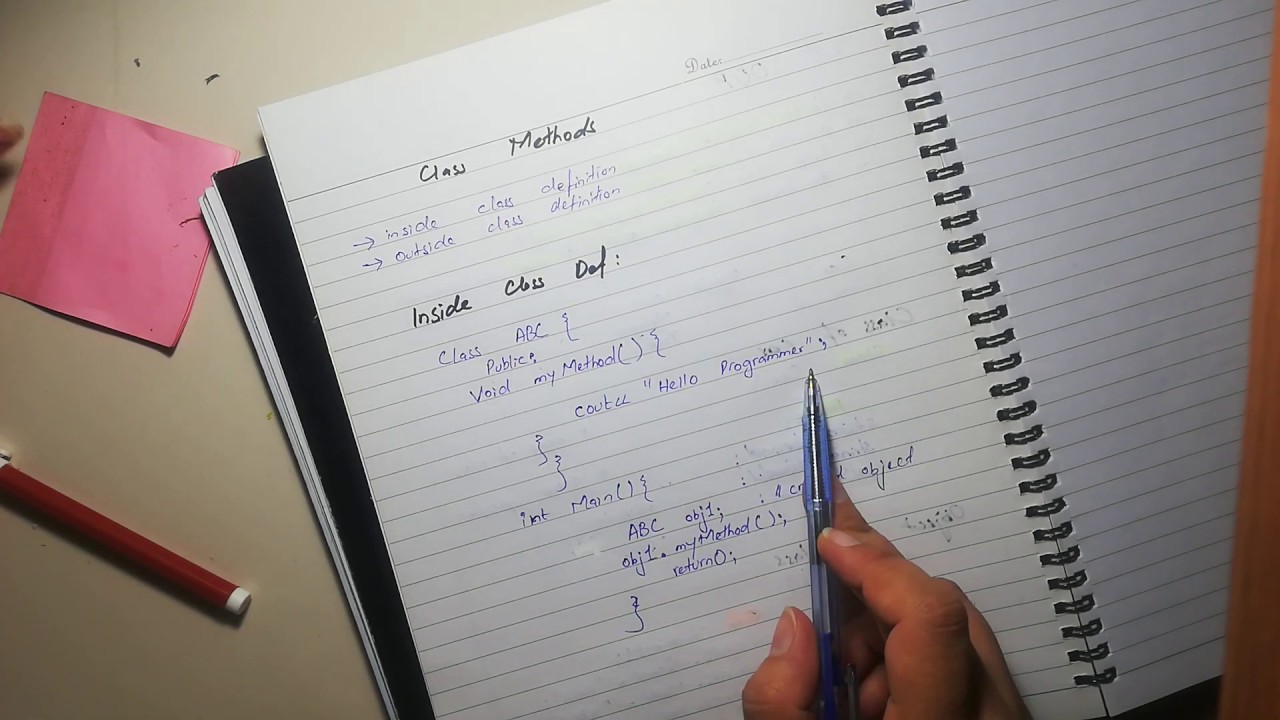 Date:
Class Methods
→ inside class definition
→ outside class definition
Inside Class Def:
Class ABC {
Public:
Void myMethod() {
cout<< "Hello Programmer";
}
}
int Main() {
ABC obj1; // object
obj1.myMethod();
return0;
}